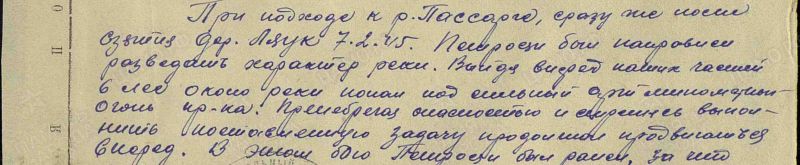 При подходе к р. Пассарге, сразу же после
взятия дер. 7.2.45. Петросян был направлен
разведать характер реки. Выйдя вперед наших частей
в лес около реки попал под сильный арт. минометный
огонь пр-ка. Пренебрегая опасностью и стремясь выпол-
нить поставленную задачу продолжал продвигаться
вперед. В этом бою Петросян был ранен, за что